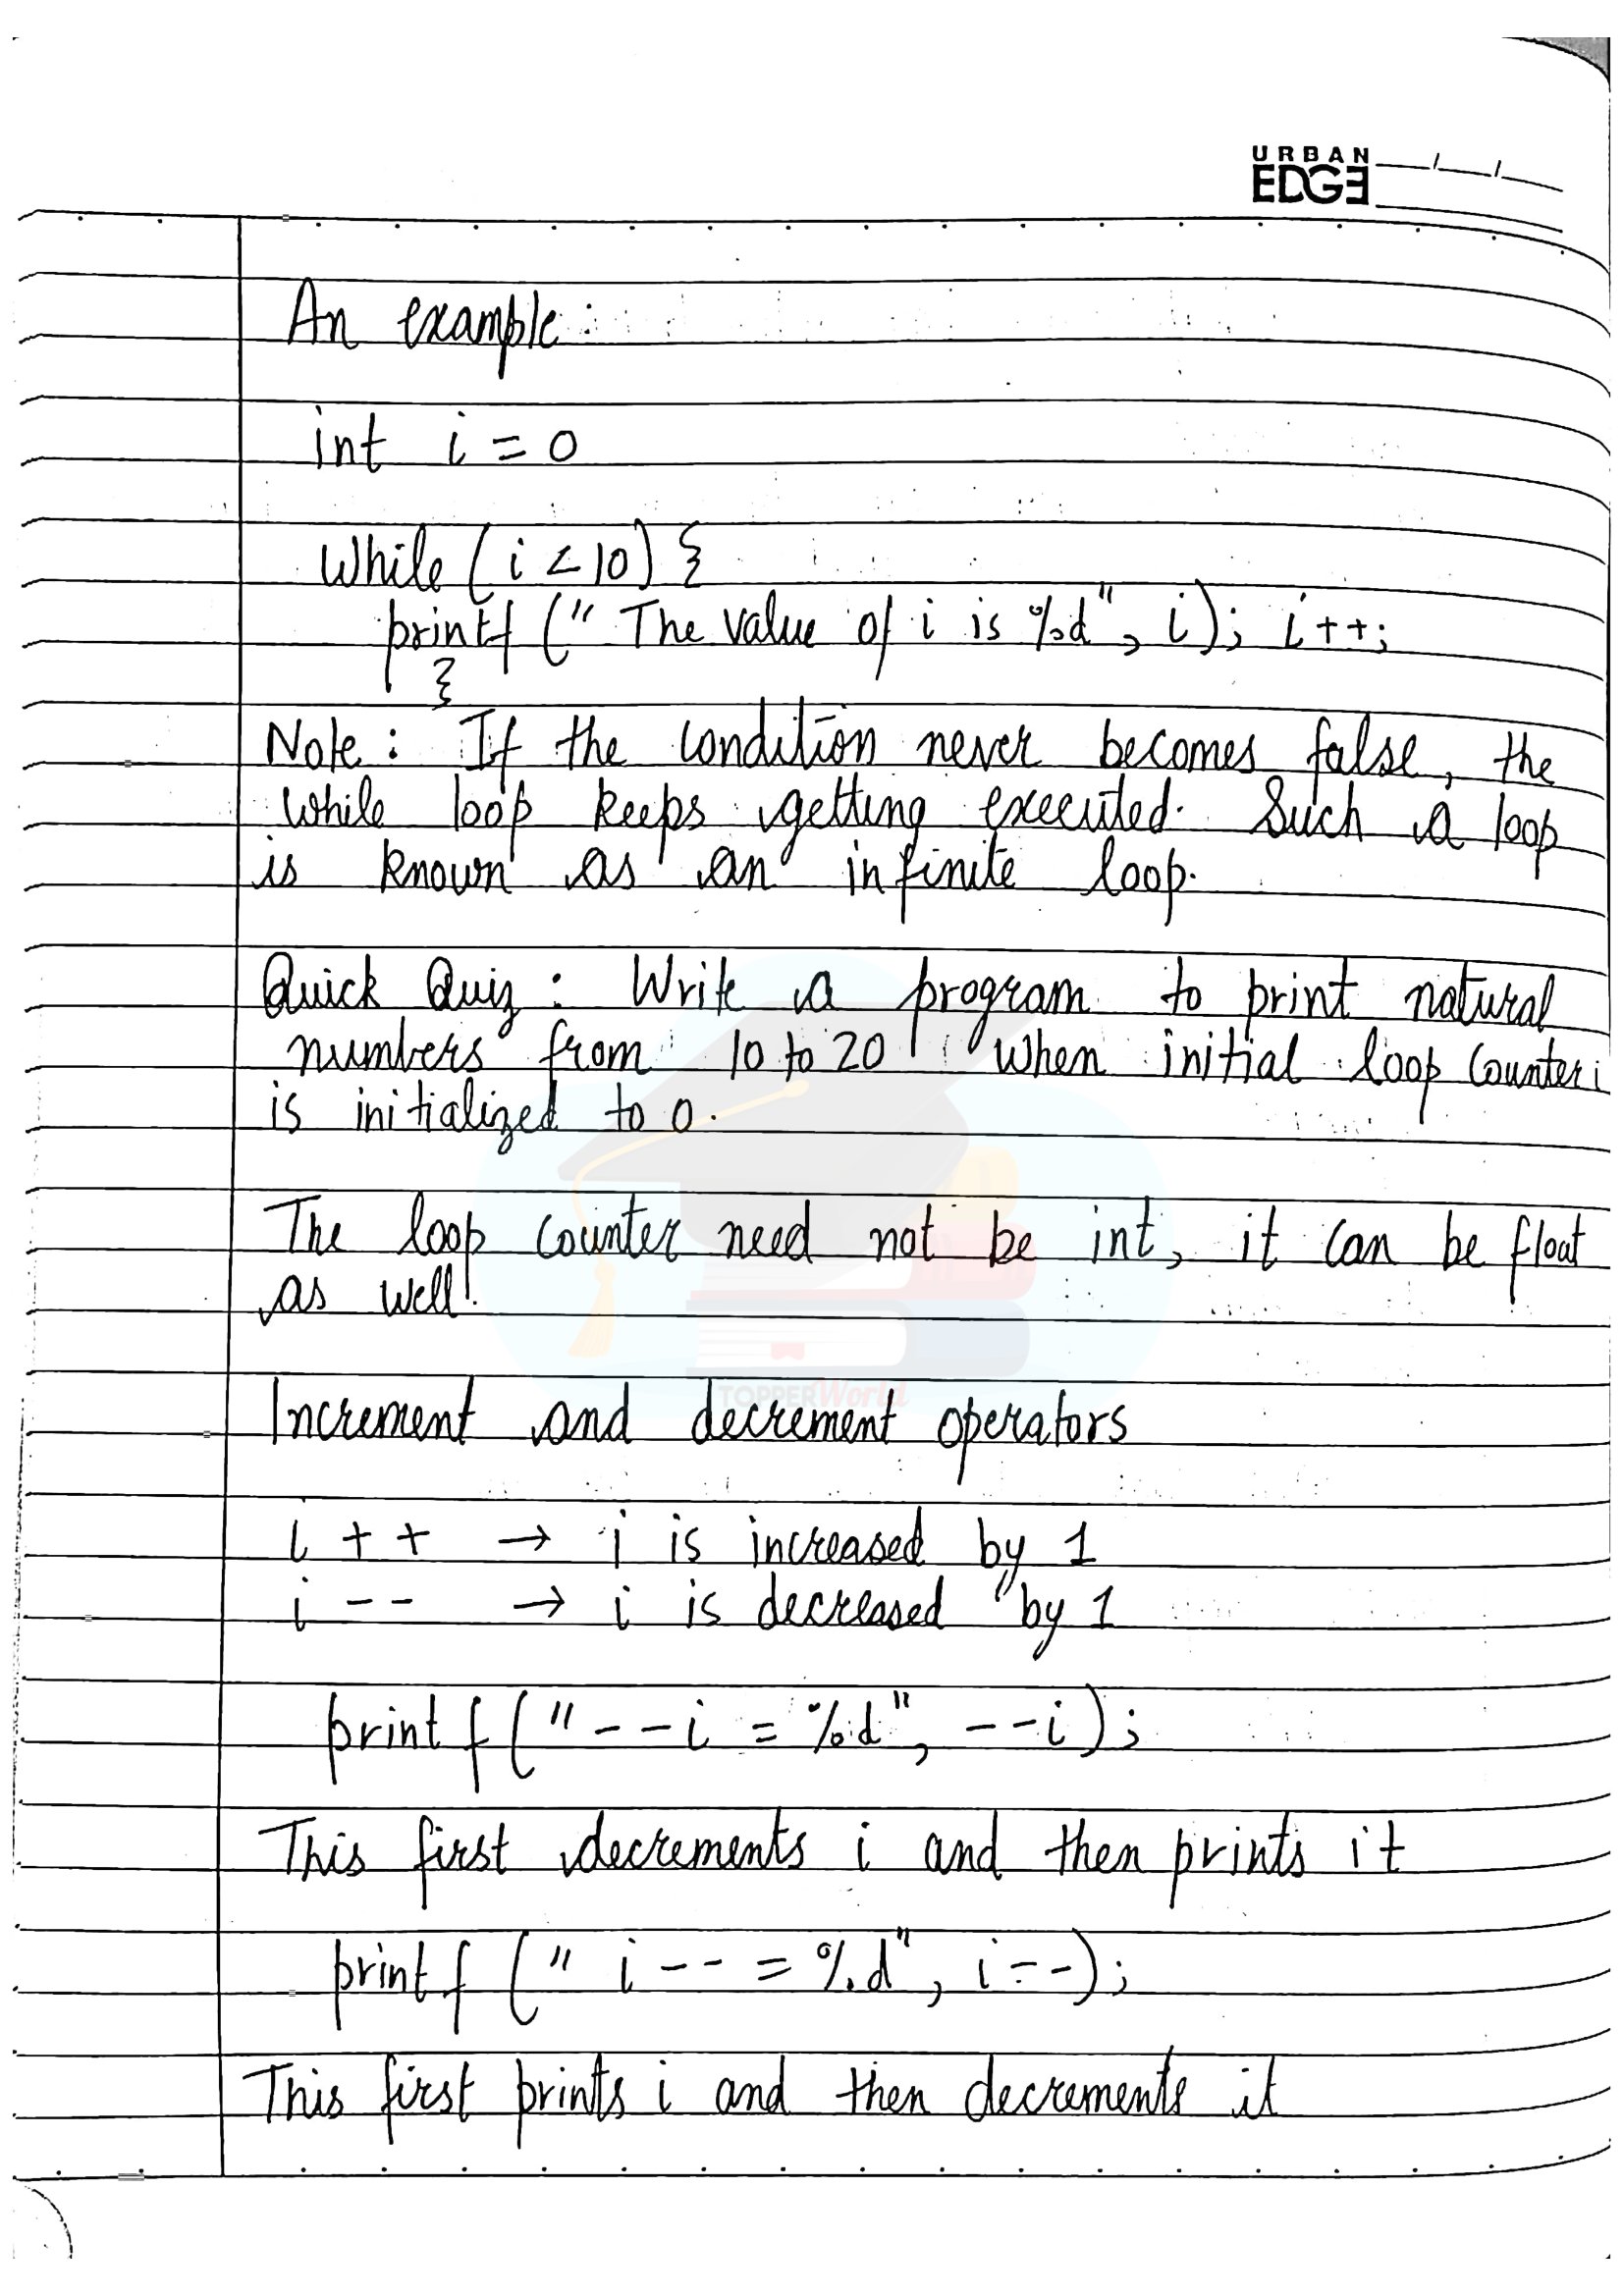 URBAN
EDGE
An example:
int i = 0
while (i < 10) {
printf (" The value of i is %d", i); i++;
}
Note: If the condition never becomes false, the
while loop keeps getting executed. Such a loop
is known as an infinite loop.
Quick Quiz: Write a program to print natural
numbers from 10 to 20 when initial loop counter i
is initialized to 0.
The loop counter need not be int, it can be float
as well.
TOPPERWorld
Increment and decrement operators
i + + → i is increased by 1
i -- → i is decreased by 1
printf ("--i = %d", --i);
This first decrements i and then prints it
printf (" i -- = %d", i --);
This first prints i and then decrements it